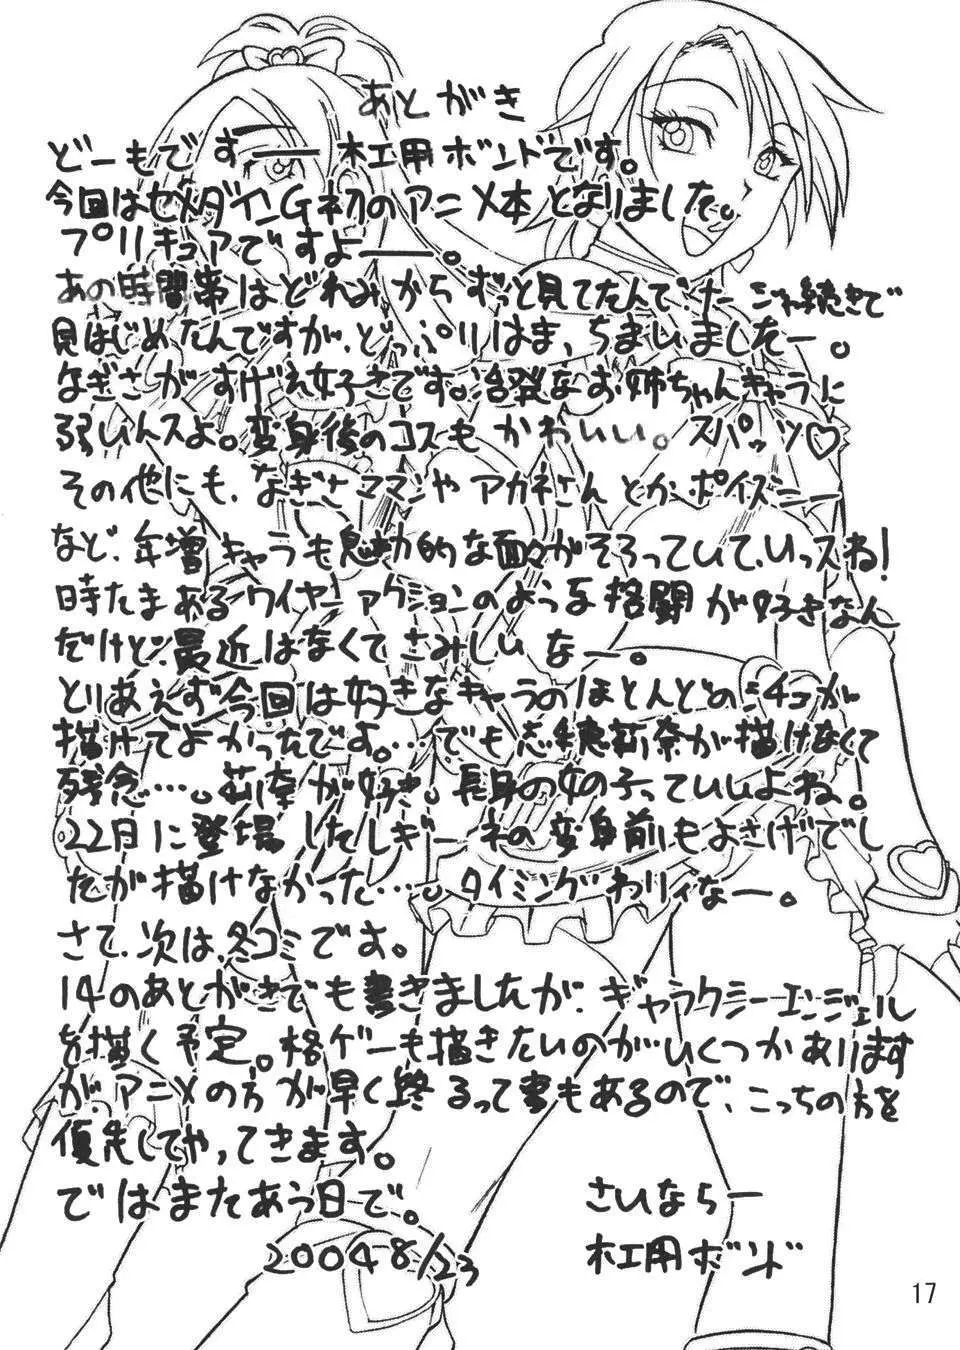 あとがき
どーもですー 木工用ボンドです。
今回はセメダインG初のアニメ本となりました。
プリキュアですよー。
あの時間帯はどれみからずっと見てたんで、その続きで
見はじめたんですが、どっぷりはま、ちまいましたー。
なぎさがすげえ好きです。活発なお姉ちゃんキャラに
弱いんスよ。変身後のコスもかわいい。スパッツ♡
その他にも、なぎさママンやアカネさんとかポイズニー
など、年増キャラも魅力的な面々がそろっていて、いっスね!
時たまあるワイヤーアクションのような格闘が好きなん
だけど、最近はなくてさみしいなー。
とりあえず今回は好きなキャラのほとんどのシチュが
描けてよかったです。…でも志穂莉奈が描けなくて
残念…。莉奈が好き。長身の女の子っていいよね。
22日に登場したレギーネの変身前もよさげでし
たが描けなかった…。タイミングわりィなー。
さて、次は、冬コミです。
14のあとがきでも書きましたが、ギャラクシーエンジェル
を描く予定。格ゲーも描きたいのが、いくつかあります
がアニメの方が早く終るって事もあるので、こっちの方を
優先してやってきます。
ではまたあう日で。
さいならー
2004 8/23
木工用ボンド
17